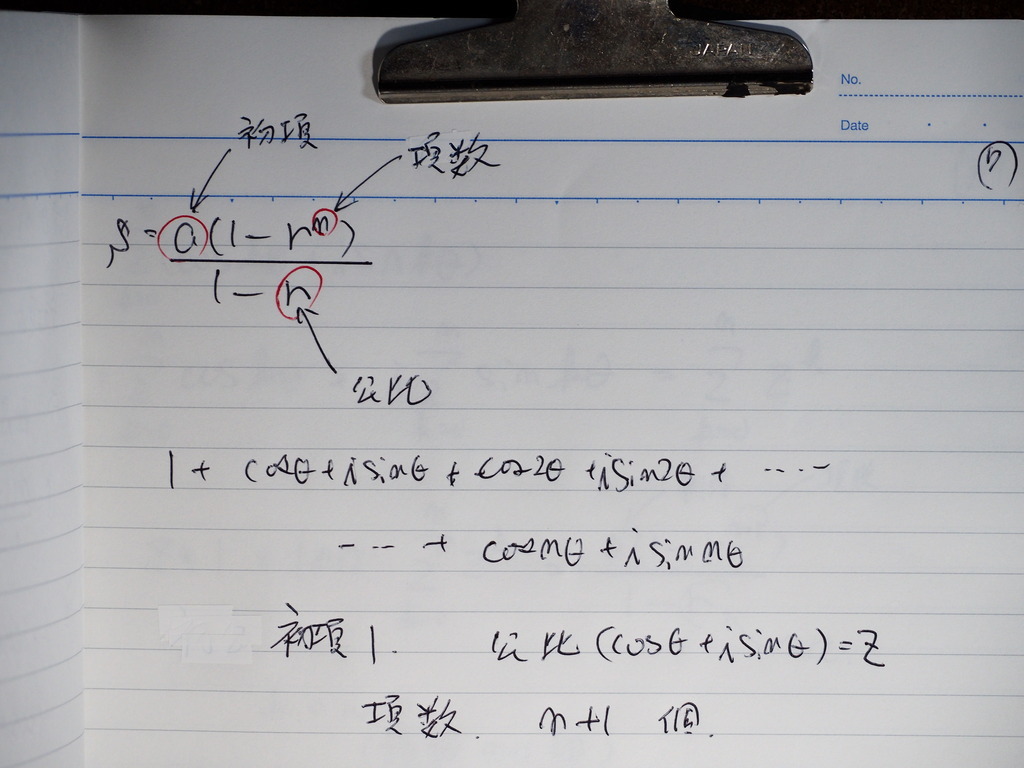 JAPAN
No.
Date
初項
項数
S = a(1 - r^n) / 1 - r
公比
1 + cosθ + i sinθ + cos2θ + i sin2θ + ‥‥‥
‥‥ + cos nθ + i sin nθ
初項 1. 公比 (cosθ + i sinθ) = Z
項数. n+1 個.